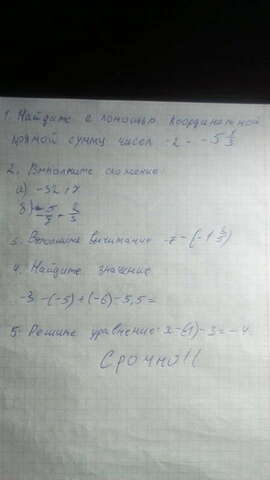 1. Найдите с помощью координатной
прямой суммы чисел -2 - -5 1/3
2. Выполните сложение
а) -32 + 7
б) -5/9 + 2/3
3. Выполните вычитание -7 - (-1
4. Найдите значение
-3 - (-5) + (-6) - 5,5 =
5. Решите уравнение: x - (1) - 3 = -4
Срочно!!